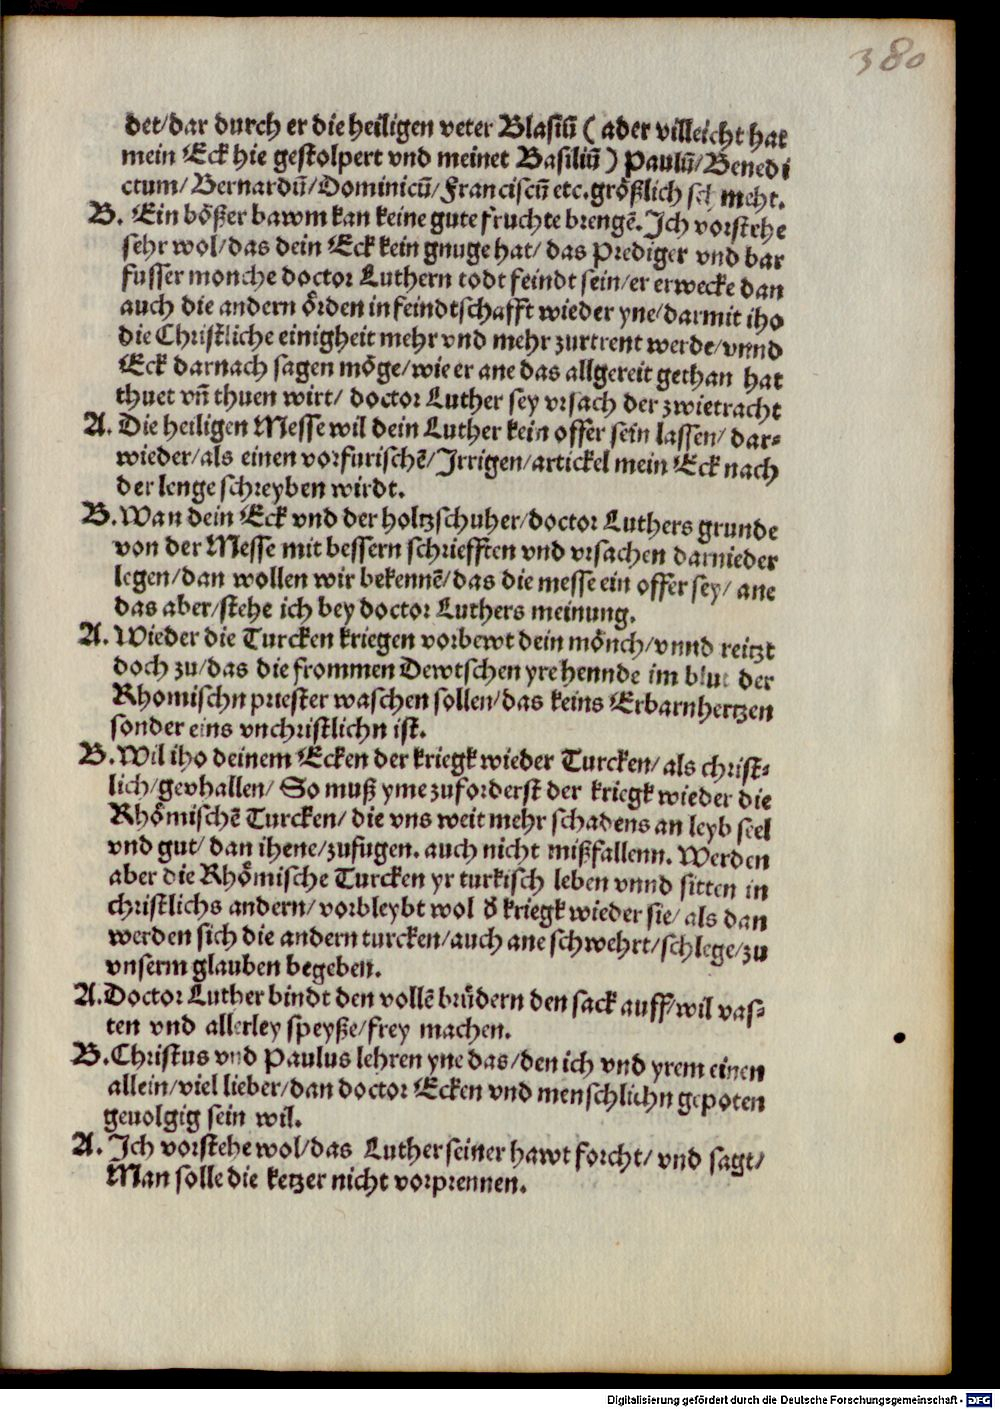 380
det/dar durch er die heiligen veter Blasiū ( ader villeicht hat
mein Eck hie gestolpert vnd meinet Basiliū ) Paulū/Benedi
ctum/Bernardū/Dominicū/Franciscū etc.größlich schmeht.
B. Ein bößer bawm kan keine gute fruchte brengē.Ich vorstehe
sehr wol/das dein Eck kein gnuge hat/ das Prediger vnd bar
fusser monche doctor Luthern todt feindt sein/er erwecke dan
auch die andern örden in feindtschafft wieder yne/darmit iho
die Christliche einigheit mehr vnd mehr zurtrent werde/vnnd
Eck darnach sagen möge/wie er ane das allgereit gethan hat
thuet vn̄ thuen wirt/ doctor Luther sey vrsach der zwietracht
A. Die heiligen Messe wil dein Luther kein offer sein lassen/ dar⸗
wieder/als einen vorfurischē/Irrigen/artickel mein Eck nach
der lenge schreyben wirdt.
B.Wan dein Eck vnd der holtzschuher/doctor Luthers grunde
von der Messe mit bessern schriefften vnd vrsachen darnieder
legen/dan wollen wir bekennē/das die messe ein offer sey/ ane
das aber/stehe ich bey doctor Luthers meinung.
A. Wieder die Turcken kriegen vorbewt dein mönch/vnnd reitzt
doch zu/das die frommen Dewtschen yre hennde im blut der
Rhomischn priester waschen sollen/das keins Erbarnhertzen
sonder eins vnchristlichn ist.
B.Wil iho deinem Ecken der kriegk wieder Turcken/ als christ⸗
lich/gevhallen/ So muß yme zuforderst der kriegk wieder die
Rhömischē Turcken/ die vns weit mehr schadens an leyb seel
vnd gut/ dan ihene/zufugen. auch nicht mißfallenn. Werden
aber die Rhömische Turcken yr turkisch leben vnnd sitten in
christlichs andern/ vorbleybt wol d̕ kriegk wieder sie/ als dan
werden sich die andern turcken/auch ane schwehrt/schlege/zu
vnserm glauben begeben.
A.Doctor Luther bindt den vollē brüdern den sack auff/wil vas⸗
ten vnd allerley speyße/frey machen.
B.Christus vnd Paulus lehren yne das/den ich vnd yrem einen
allein/viel lieber/dan doctor Ecken vnd menschlichn gepoten
geuolgig sein wil.
A. Ich vorstehe wol/das Luther seiner hawt forcht/ vnd sagt/
Man solle die ketzer nicht vorprennen.
Digitalisierung gefördert durch die Deutsche Forschungsgemeinschaft - DFG